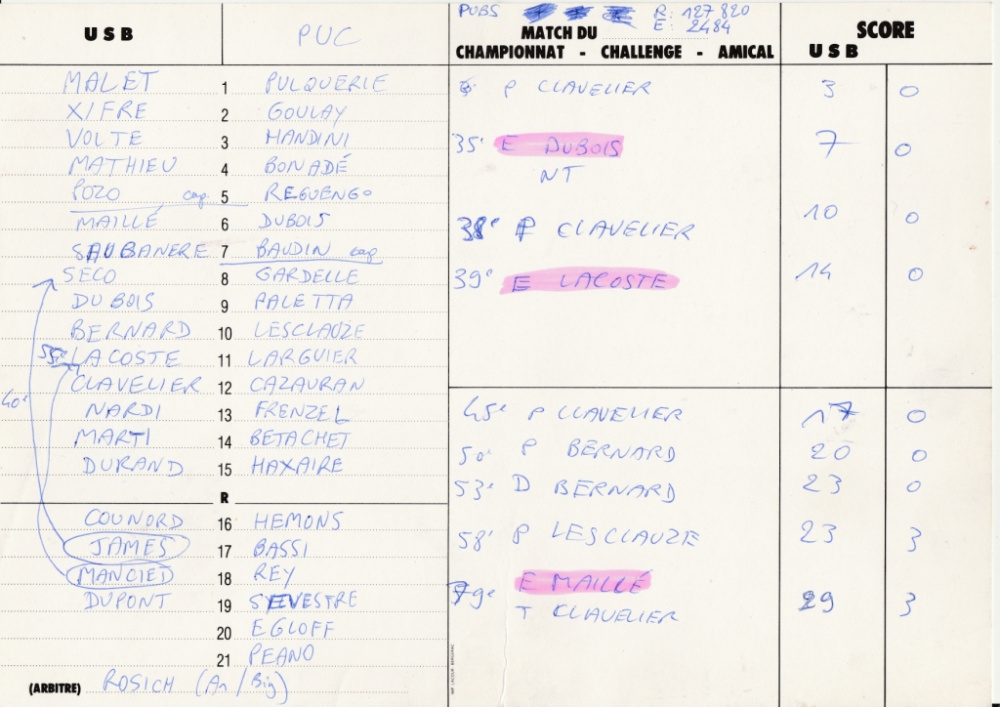 USB PUC
MALET 1 PULQUERIE
XIFRE 2 GOULAY
VOLTE 3 MANDINI
MATHIEU 4 BONADÉ
POZO cap 5 REGUENGO
MAILLÉ 6 DUBOIS
SAUBANERE 7 BAUDIN cap
SECO 8 GARDELLE
DUBOIS 9 PALETTA
BERNARD 10 LESCLAUZE
55e LACOSTE 11 LARGUIER
CLAVELIER 12 CAZAURAN
40e
NARDI 13 FRENZEL
MARTI 14 BETACHET
DURAND 15 HAXAIRE
R
COUNORD 16 HEMONS
JAMES 17 BASSI
MANCIET 18 REY
DUPONT 19 SYEVESTRE
20 EGLOFF
21 PEANO
(ARBITRE) ROSICH (An/Big)
PUBS R: 127 820
E: 2484
MATCH DU
CHAMPIONNAT - CHALLENGE - AMICAL
SCORE
USB
P CLAVELIER 3 0
35' E DUBOIS 7 0
NT
38' P CLAVELIER 10 0
39' E LACOSTE 14 0
45' P CLAVELIER 17 0
50' P BERNARD 20 0
53' D BERNARD 23 0
58' P LESCLAUZE 23 3
79e E MAILLÉ
T CLAVELIER 29 3